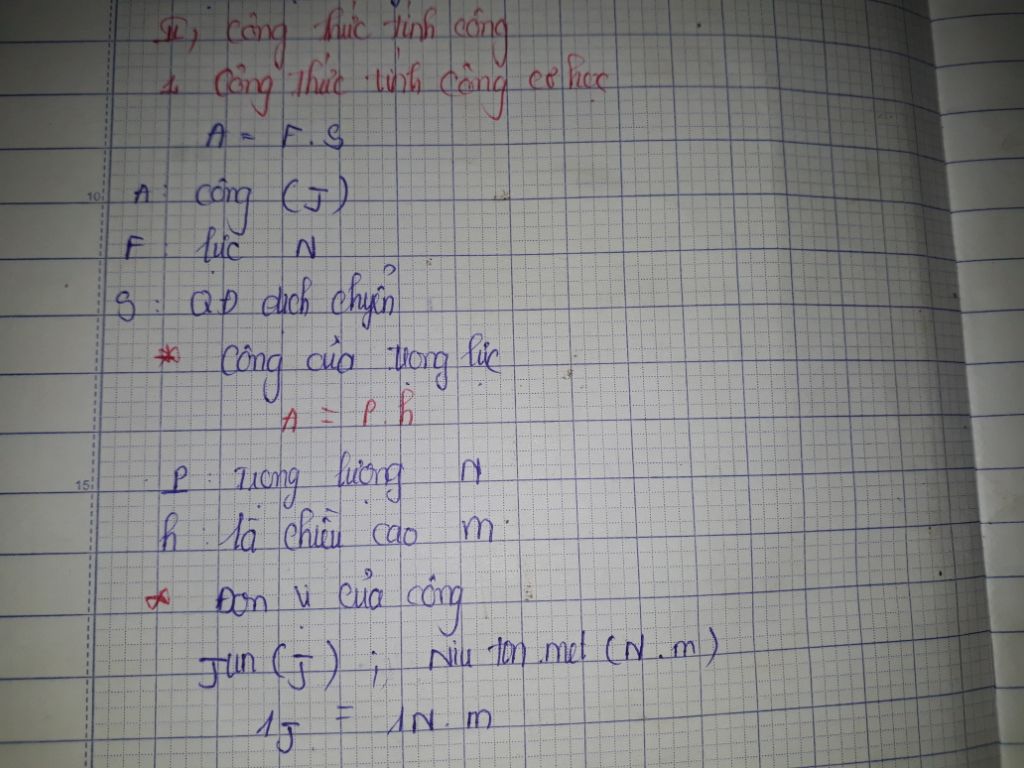 II, Công thức tính công
1 Công thức tính công cơ học
A = F.S
10
A: công (J)
F: lực N
S: QĐ dịch chuyển
* Công của trọng lực
A = P.h
15
P: trọng lượng N
h: là chiều cao m
* Đơn vị của công
Jun (J) ; Niu tơn.met (N.m)
1J = 1N.m